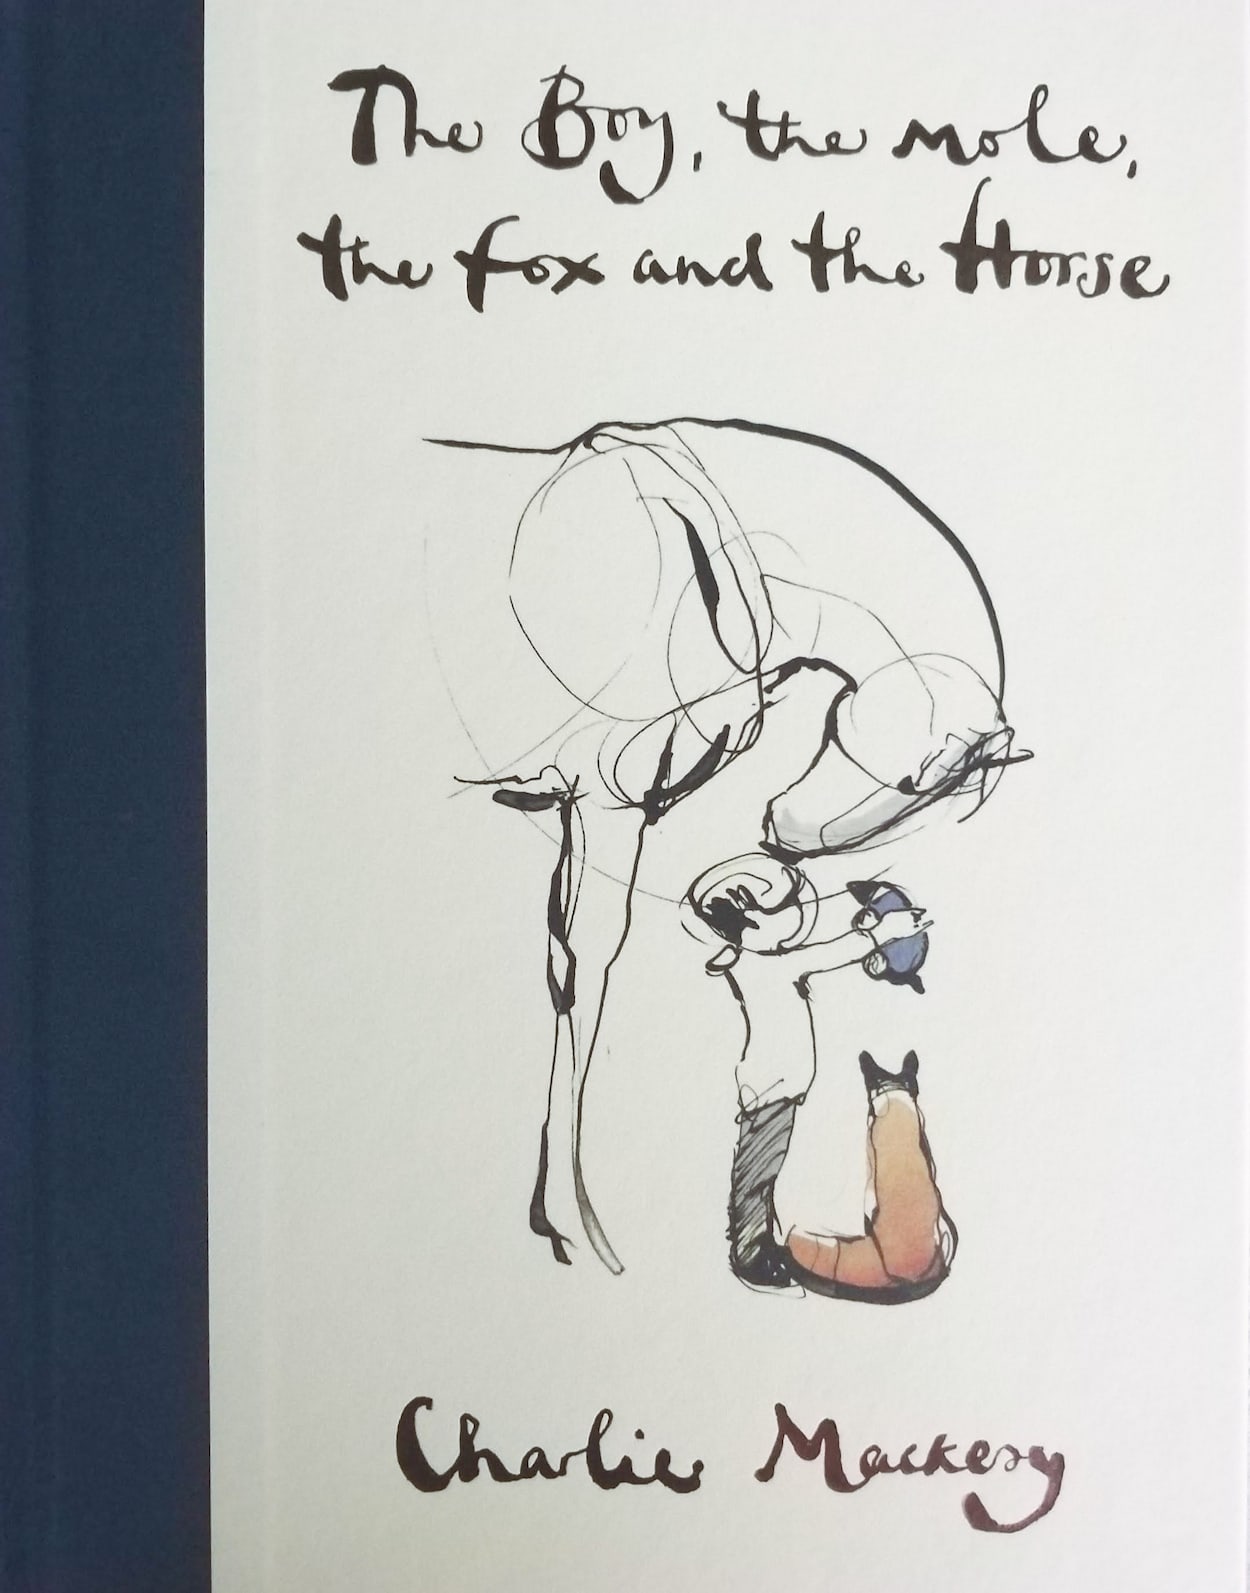 The Boy, the mole,
the fox and the Horse
Charlie Mackesy